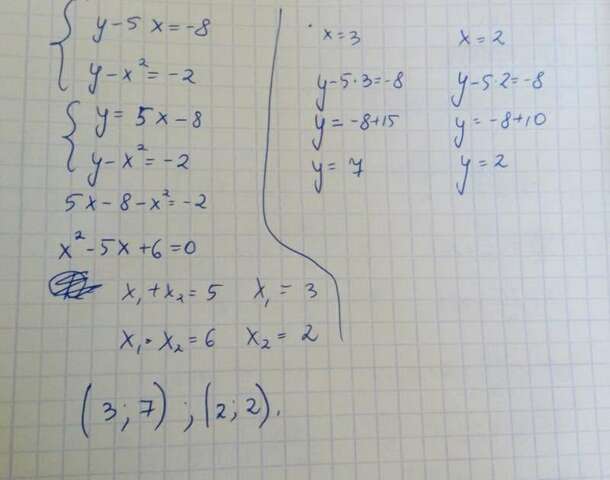 y-5x=-8
y-x²=-2
y=5x-8
y-x²=-2
5x-8-x²=-2
x²-5x+6=0
x₁+x₂=5 x₁=3
x₁·x₂=6 x₂=2
(3;7);(2;2).
x=3 x=2
y-5·3=-8 y-5·2=-8
y=-8+15 y=-8+10
y=7 y=2